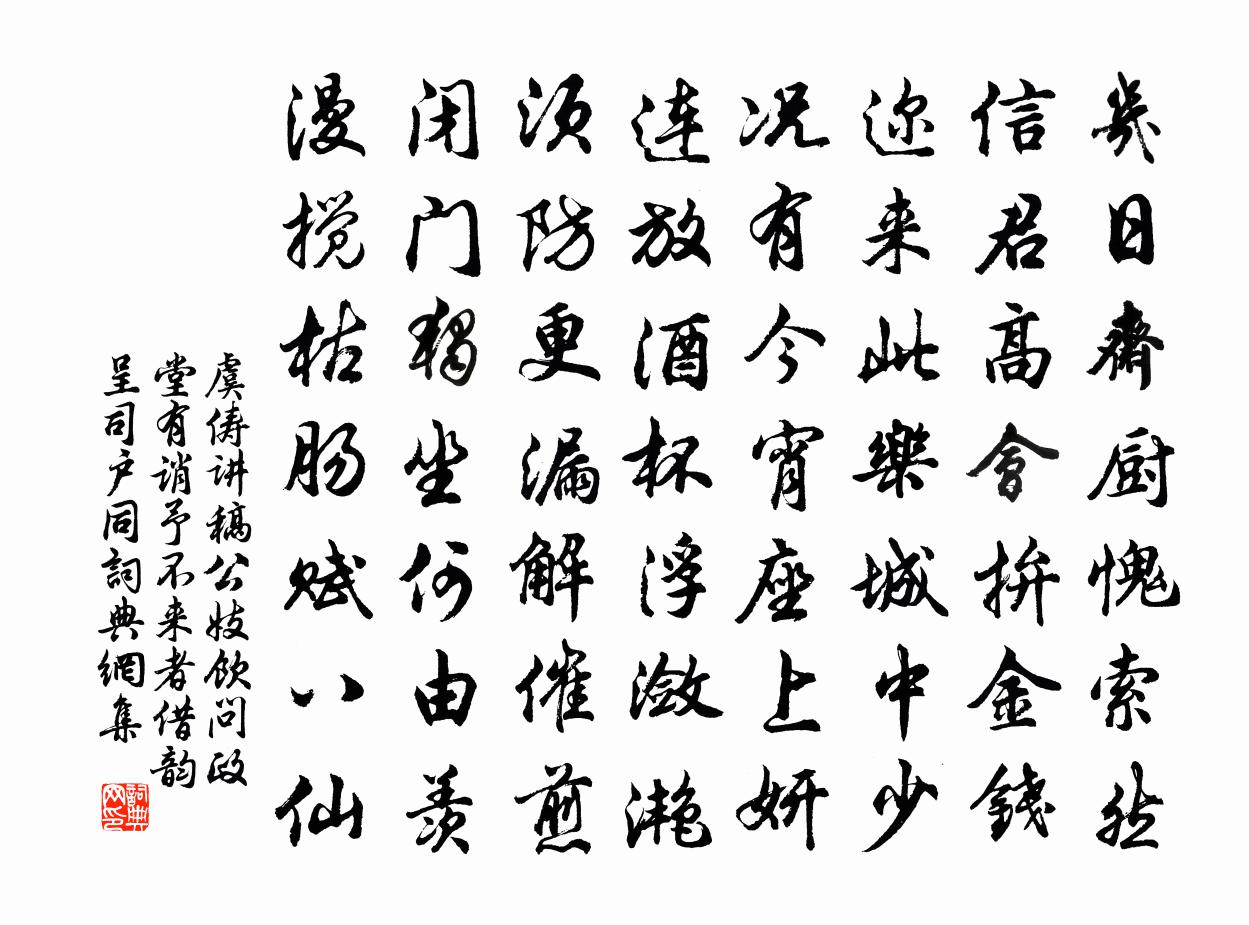 幾日齋厨愧索然
信君高會拚金錢
迩来此樂城中少
况有今宵座上妍
连放酒杯浮潋滟
须防更漏解催煎
闭门獨坐何由羨
漫搅枯肠赋八仙
虞俦讲稿公妓饮问政
堂有诮予不来者借韵
呈司户同詞典網集
詞典
网印